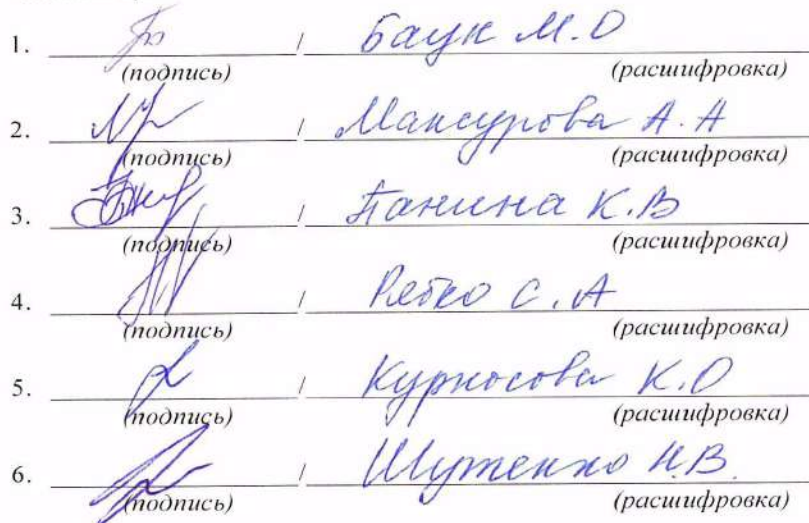 1. / Баук М.О
(подпись) (расшифровка)
2. / Мансурова А.А
(подпись) (расшифровка)
3. / Панина К.В
(подпись) (расшифровка)
4. / С.А
(подпись) (расшифровка)
5. / Курносова К.О
(подпись) (расшифровка)
6. / Н.В.
(подпись) (расшифровка)